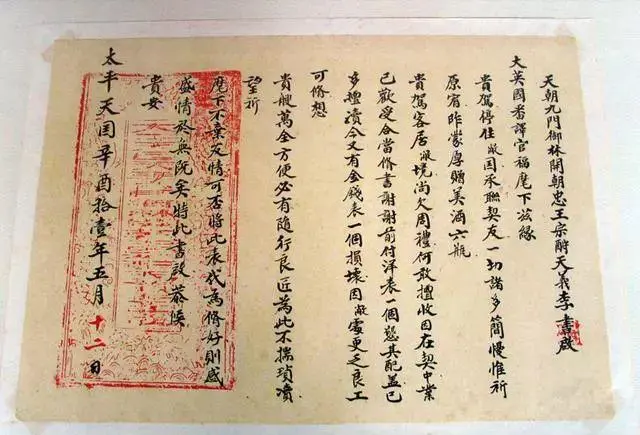 天朝九門御林開朝忠王宗府天義李書啟
大英國番譯官福麾下茲緣
貴駕停住敝國承聯契友一切諸多簡慢惟祈
原宥昨蒙厚贈美酒六瓶
貴駕客居敝境尚欠周禮何敢擅收因在契中業
已歡受合當脩書謝謝前付洋表一個懇其配蓋已
多擅瀆今又有金錢表一個損壞因敝處更乏良工
可脩想
貴艘萬全方便必有隨行良匠為此不揣瑣瀆
望祈
麾下不棄友情可否將此表代為脩好則感
盛情於無既矣特此書啟恭候
貴安
太平天囯辛酉拾壹年五月十二日